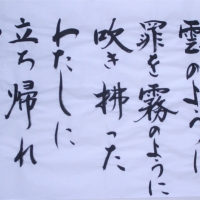 雲のように
罪を霧のように
吹き払った
わたしに
立ち帰れ